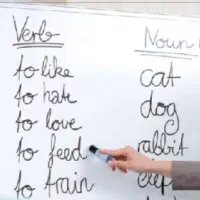 Verb
to like
to hate
to love
to feed
to train
Noun
cat
dog
rabbit